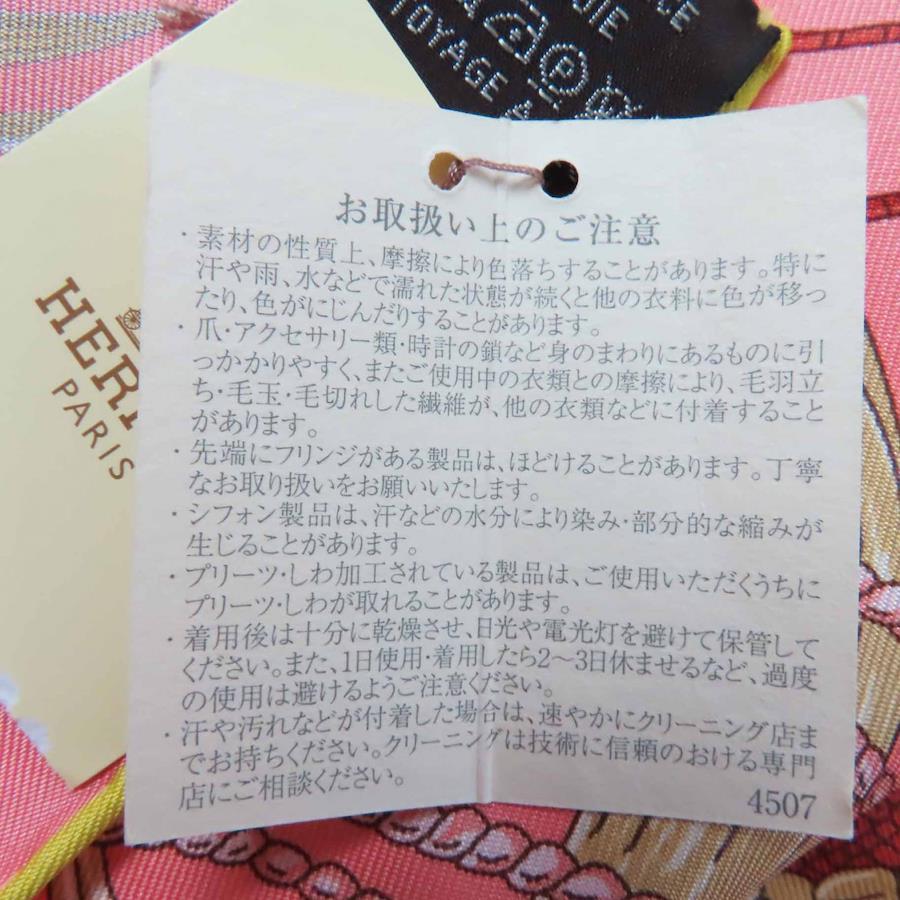 お取扱い上のご注意
・素材の性質上、摩擦により色落ちすることがあります。特に
汗や雨、水などで濡れた状態が続くと他の衣料に色が移っ
たり、色がにじんだりすることがあります。
・爪・アクセサリー類・時計の鎖など身のまわりにあるものに引
っかかりやすく、またご使用中の衣類との摩擦により、毛羽立
ち・毛玉・毛切れした繊維が、他の衣類などに付着すること
があります。
・先端にフリンジがある製品は、ほどけることがあります。丁寧
なお取り扱いをお願いいたします。
・シフォン製品は、汗などの水分により染み・部分的な縮みが
生じることがあります。
・プリーツ・しわ加工されている製品は、ご使用いただくうちに
プリーツ・しわが取れることがあります。
・着用後は十分に乾燥させ、日光や電光灯を避けて保管して
ください。また、1日使用・着用したら2〜3日休ませるなど、過度
の使用は避けるようご注意ください。
・汗や汚れなどが付着した場合は、速やかにクリーニング店ま
でお持ちください。クリーニングは技術に信頼のおける専門
店にご相談ください。
4507
HER
PARIS